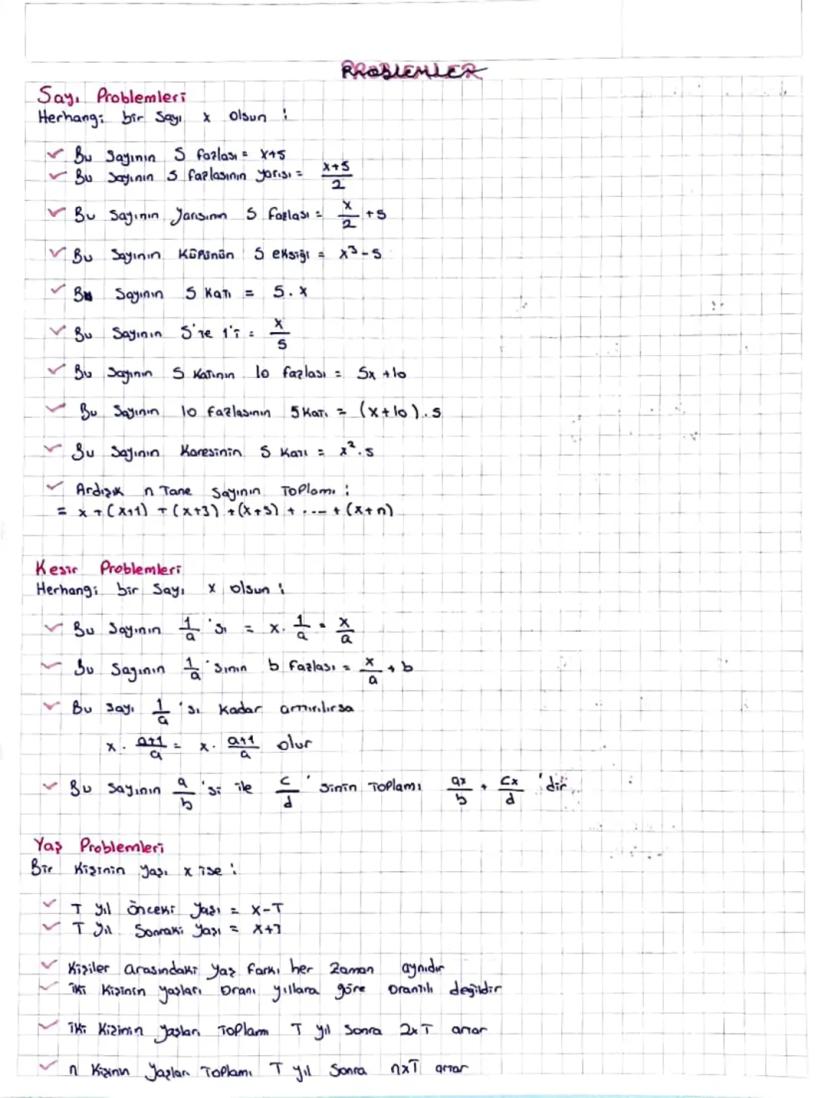 PROBLEMLER
Sayı Problemleri
Herhangi bir Sayı x olsun :
✓ Bu Sayının 5 fazlası = x+5
✓ Bu Sayının 5 fazlasının yarısı = (x+5)/2
✓ Bu Sayının Yarısının 5 fazlası = x/2 + 5
✓ Bu Sayının Küpünün 5 eksiği = x³ - 5
✓ Bu Sayının 5 Katı = 5 . x
✓ Bu Sayının 5'te 1'i = x/5
✓ Bu Sayının 5 Katının 10 fazlası = 5x + 10
✓ Bu Sayının 10 fazlasının 5 Katı = (x+10) . 5
✓ Bu Sayının Karesinin 5 Katı = x² . 5
✓ Ardışık n Tane Sayının Toplamı :
= x + (x+1) + (x+3) + (x+5) + .... + (x+n)
Kesir Problemleri
Herhangi bir Sayı x olsun :
✓ Bu Sayının 1/a 'sı = x . 1/a = x/a
✓ Bu Sayının 1/a 'sının b fazlası = x/a + b
✓ Bu Sayı 1/a 'sı Kadar artırılırsa
x . (a+1)/a = x . (a+1)/a olur
✓ Bu Sayının a/b 'si ile c/d ' sinin Toplamı ax/b + cx/d 'dir.
Yaş Problemleri
Bir Kişinin yaşı x ise :
✓ T yıl önceki Yaşı = x-T
✓ T yıl Sonraki Yaşı = x+T
✓ Kişiler arasındaki yaş farkı her Zaman aynıdır
✓ iki Kişinin yaşları Oranı yıllara göre Orantılı değildir
✓ iki Kişinin yaşları Toplamı T yıl Sonra 2xT artar
✓ n Kişinin Yaşları Toplamı T yıl Sonra nxT artar